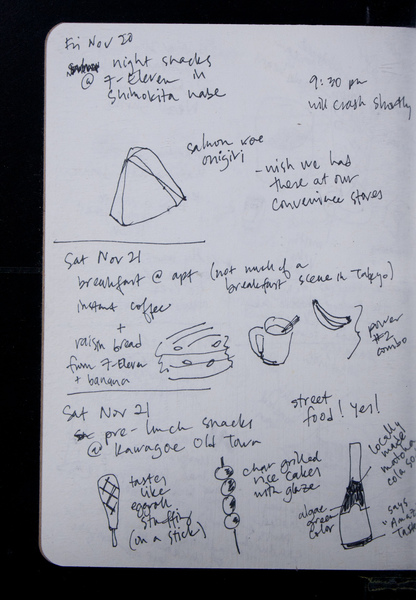 Fri Nov 20
night snacks
@ 7-Eleven in
Shimokita
9:30 pm
will crash shortly
salmon roe
onigiri
- wish we had
these at our
convenience stores
Sat Nov 21
breakfast @ apt (not much of a
breakfast scene in Tokyo)
instant coffee
+
raisin bread
from 7-Eleven
+ banana
power
#2
combo
Sat Nov 21
pre-lunch snacks
@ Kawagoe Old Town
street
food! Yes!
tastes
like
eggroll
stuffing
(on a stick)
char grilled
rice cakes
with glaze
locally
made
matcha
cola
algae
green
color
"says